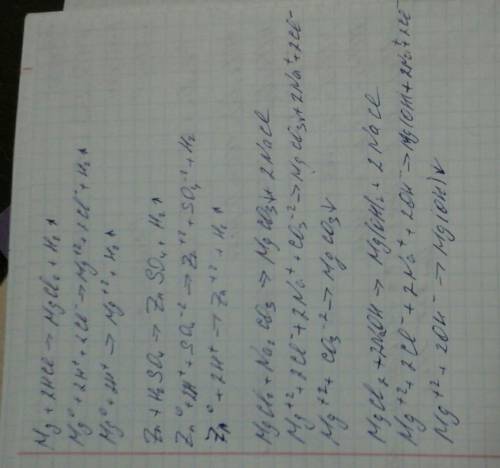 Mg + 2HCl → MgCl₂ + H₂↑
Mg⁰ + 2H⁺ + 2Cl⁻ → Mg⁺² + 2Cl⁻ + H₂↑
Mg⁰ + 2H⁺ → Mg⁺² + H₂↑
Zn + H₂SO₄ → ZnSO₄ + H₂↑
Zn⁰ + 2H⁺ + SO₄⁻² → Zn⁺² + SO₄⁻² + H₂
Zn⁰ + 2H⁺ → Zn⁺² + H₂↑
MgCl₂ + Na₂CO₃ → MgCO₃↓ + 2NaCl
Mg⁺² + 2Cl⁻ + 2Na⁺ + CO₃⁻² → MgCO₃↓ + 2Na⁺ + 2Cl⁻
Mg⁺² + CO₃⁻² → MgCO₃↓
MgCl₂ + 2NaOH → Mg(OH)₂ + 2NaCl
Mg⁺² + 2Cl⁻ + 2Na⁺ + 2OH⁻ → Mg(OH)₂ + 2Na⁺ + 2Cl⁻
Mg⁺² + 2OH⁻ → Mg(OH)↓